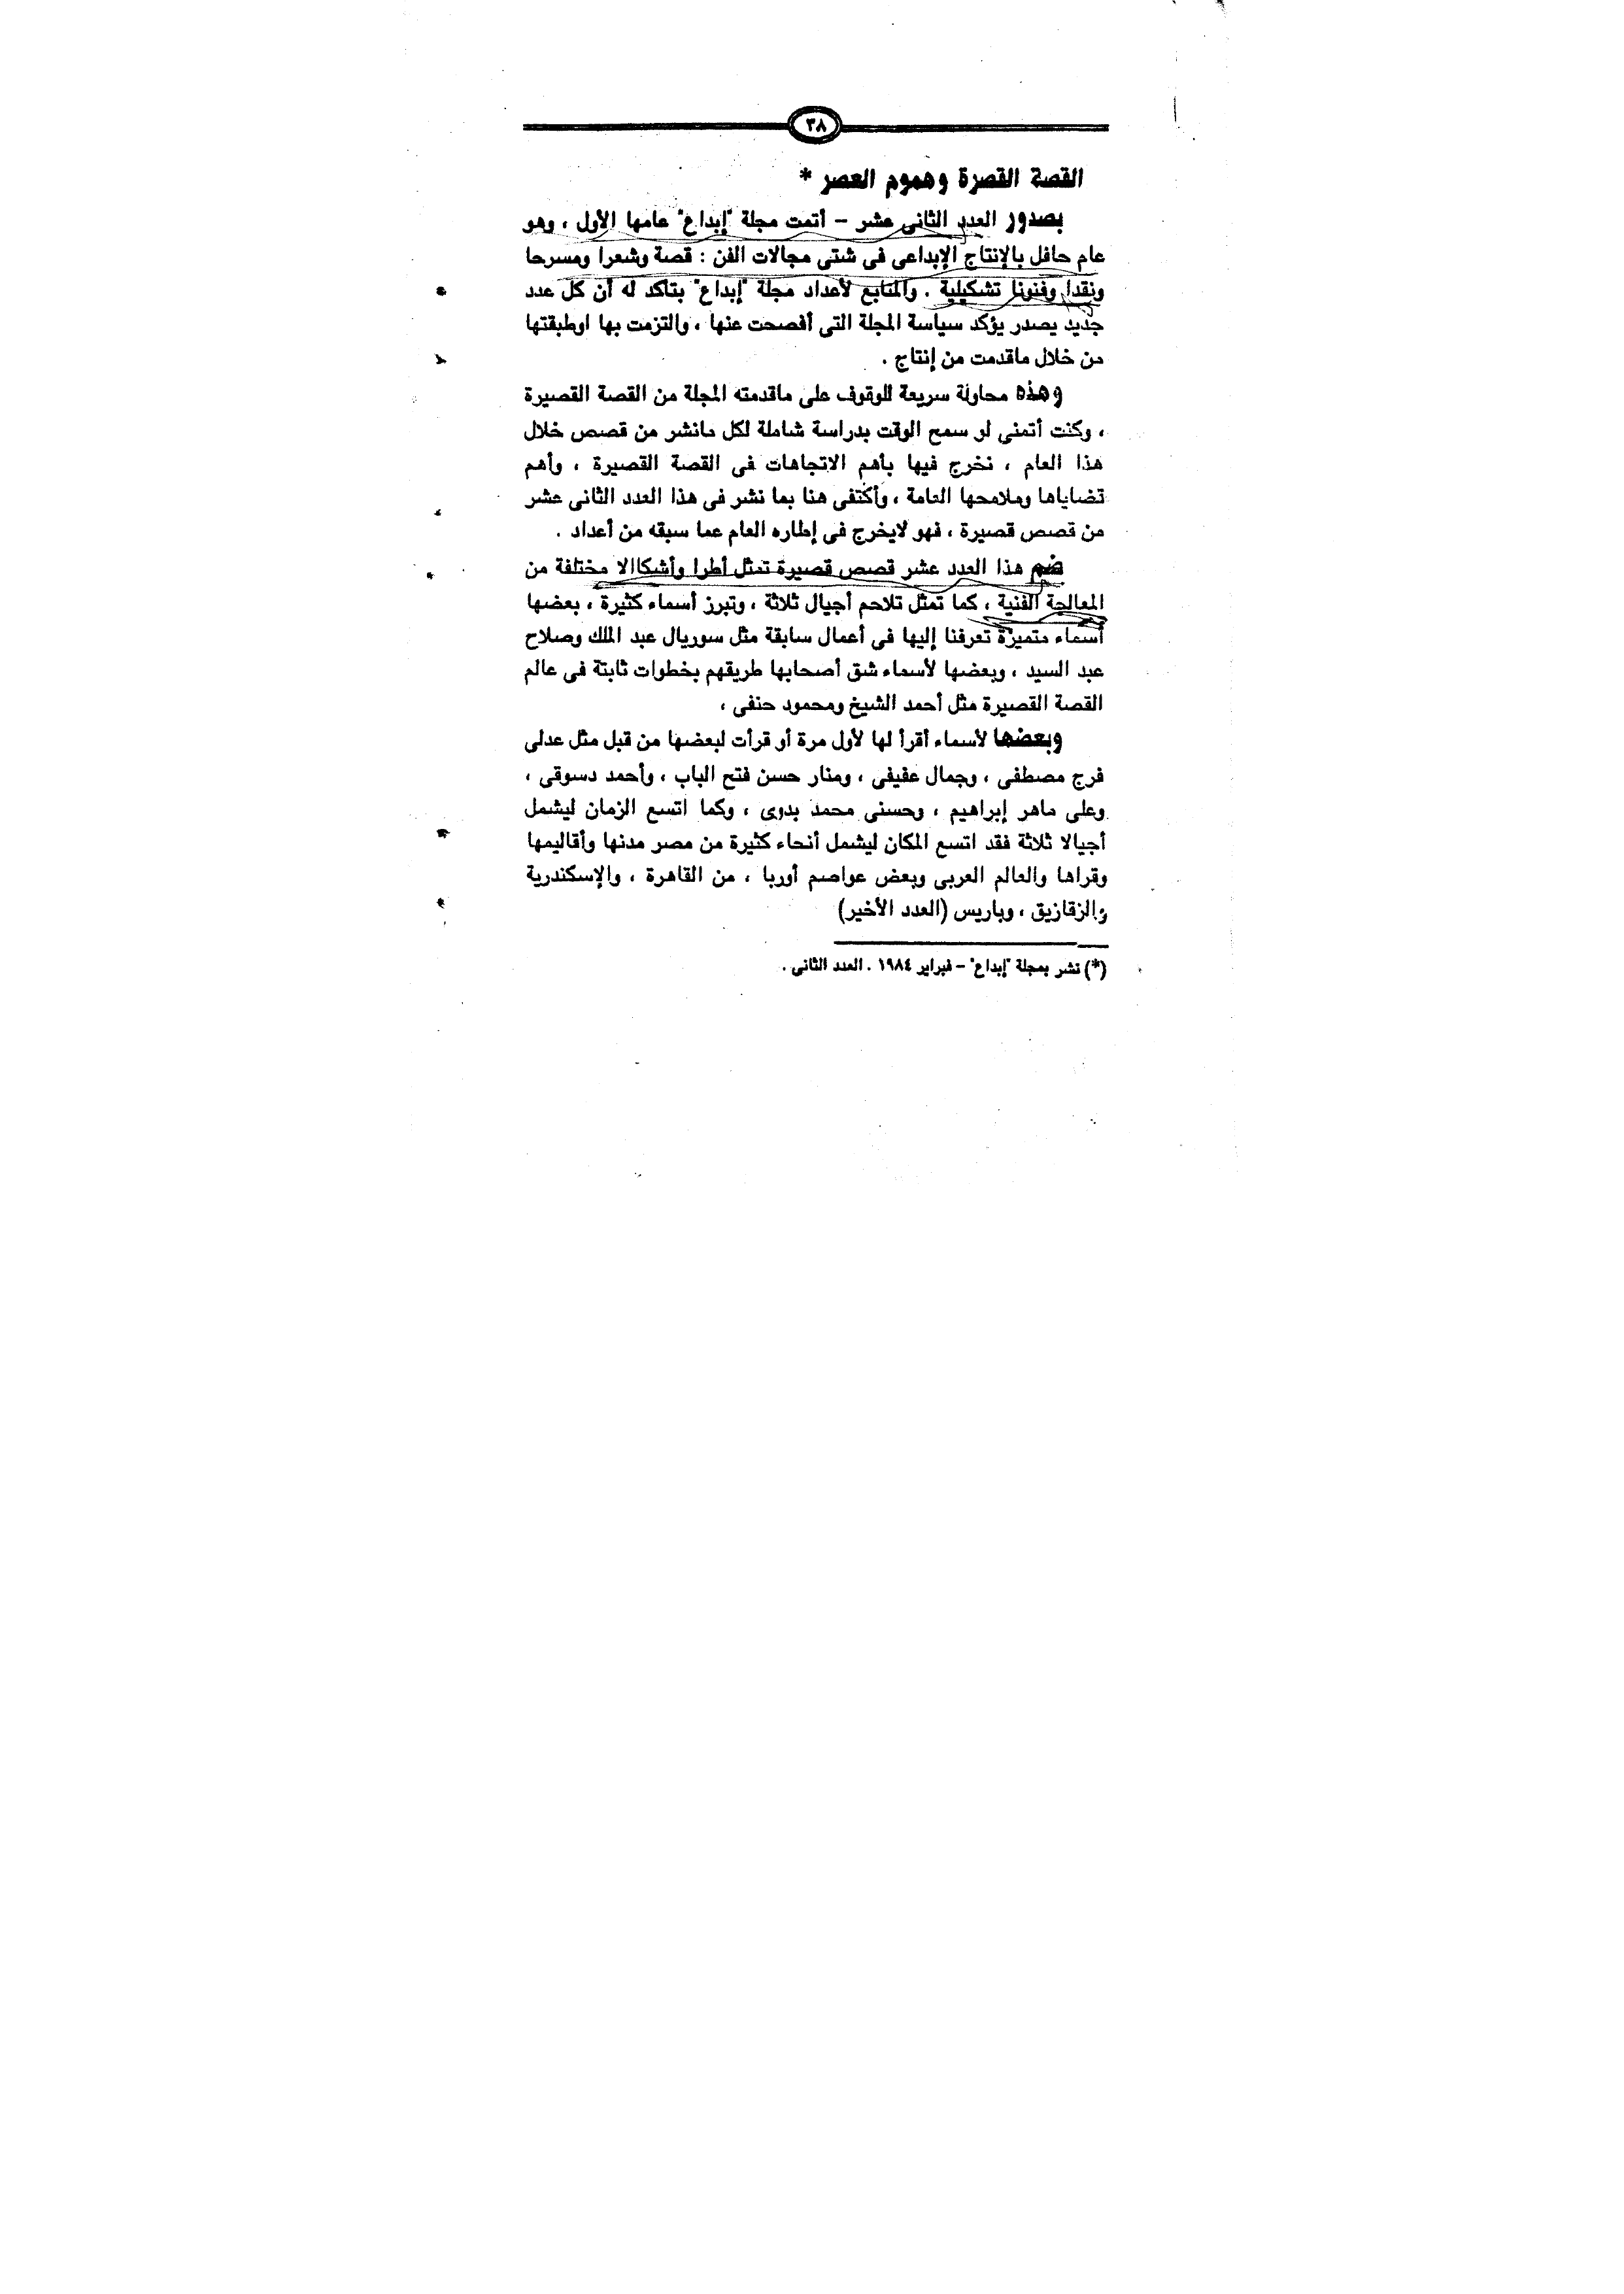 ٣٨
القصة القصرة وهموم العصر *
بصدور العدد الثانى عشر – أتمت مجلة "إبداع" عامها الأول ، وهو
عام حافل بالإنتاج الإبداعى فى شتى مجالات الفن : قصة وشعرا ومسرحا
ونقدا وفنونا تشكيلية . والمتابع لأعداد مجلة "إبداع" يتأكد له أن كل عدد
جديد يصدر يؤكد سياسة المجلة التى أفصحت عنها ، والتزمت بها اوطبقتها
من خلال ماقدمت من إنتاج .
وهذه محاولة سريعة للوقوف على ماقدمته المجلة من القصة القصيرة
، وكنت أتمنى لو سمح الوقت بدراسة شاملة لكل مانشر من قصص خلال
هذا العام ، نخرج فيها بأهم الاتجاهات فى القصة القصيرة ، وأهم
قضاياها وملامحها العامة ، وأكتفى هنا بما نشر فى هذا العدد الثانى عشر
من قصص قصيرة ، فهو لايخرج فى إطاره العام عما سبقه من أعداد .
ضم هذا العدد عشر قصص قصيرة تمثل أطرا وأشكاالا مختلفة من
المعالجة الفنية ، كما تمثل تلاحم أجيال ثلاثة ، وتبرز أسماء كثيرة ، بعضها
أسماء متميزة تعرفنا إليها فى أعمال سابقة مثل سوريال عبد الملك وصلاح
عبد السيد ، وبعضها لأسماء شق أصحابها طريقهم بخطوات ثابتة فى عالم
القصة القصيرة مثل أحمد الشيخ ومحمود حنفى ،
وبعضها لأسماء أقرأ لها لأول مرة أو قرأت لبعضها من قبل مثل عدلى
فرج مصطفى ، وجمال عفيفى ، ومنار حسن فتح الباب ، وأحمد دسوقى ،
وعلى ماهر إبراهيم ، وحسنى محمد بدوى ، وكما اتسع الزمان ليشمل
أجيالا ثلاثة فقد اتسع المكان ليشمل أنحاء كثيرة من مصر مدنها وأقاليمها
وقراها والعالم العربى وبعض عواصم أوربا ، من القاهرة ، والإسكندرية
والزقازيق ، وباريس (العدد الأخير)
(*) نشر بمجلة "إبداع" – فبراير ١٩٨٤ . العدد الثانى .